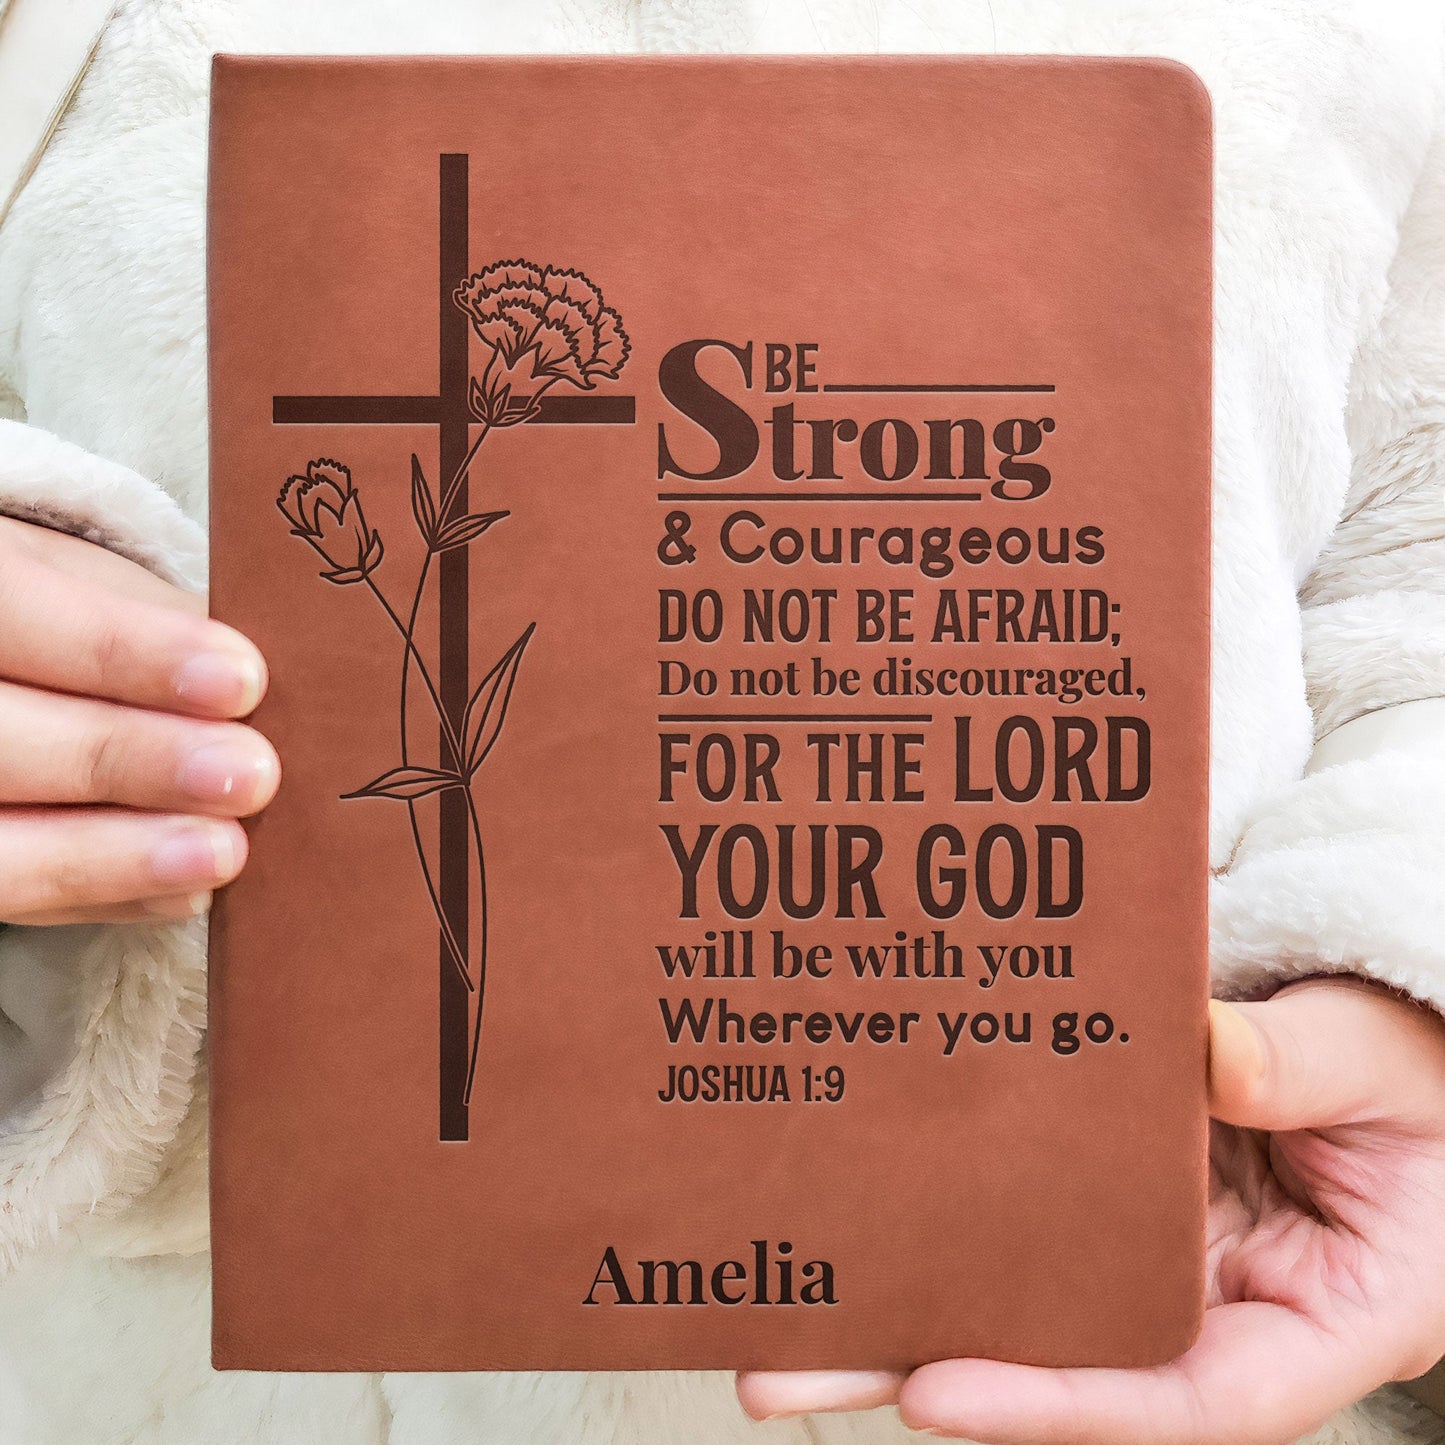 BE
Strong
& Courageous
DO NOT BE AFRAID;
Do not be discouraged,
FOR THE LORD
YOUR GOD
will be with you
Wherever you go.
JOSHUA 1:9
Amelia